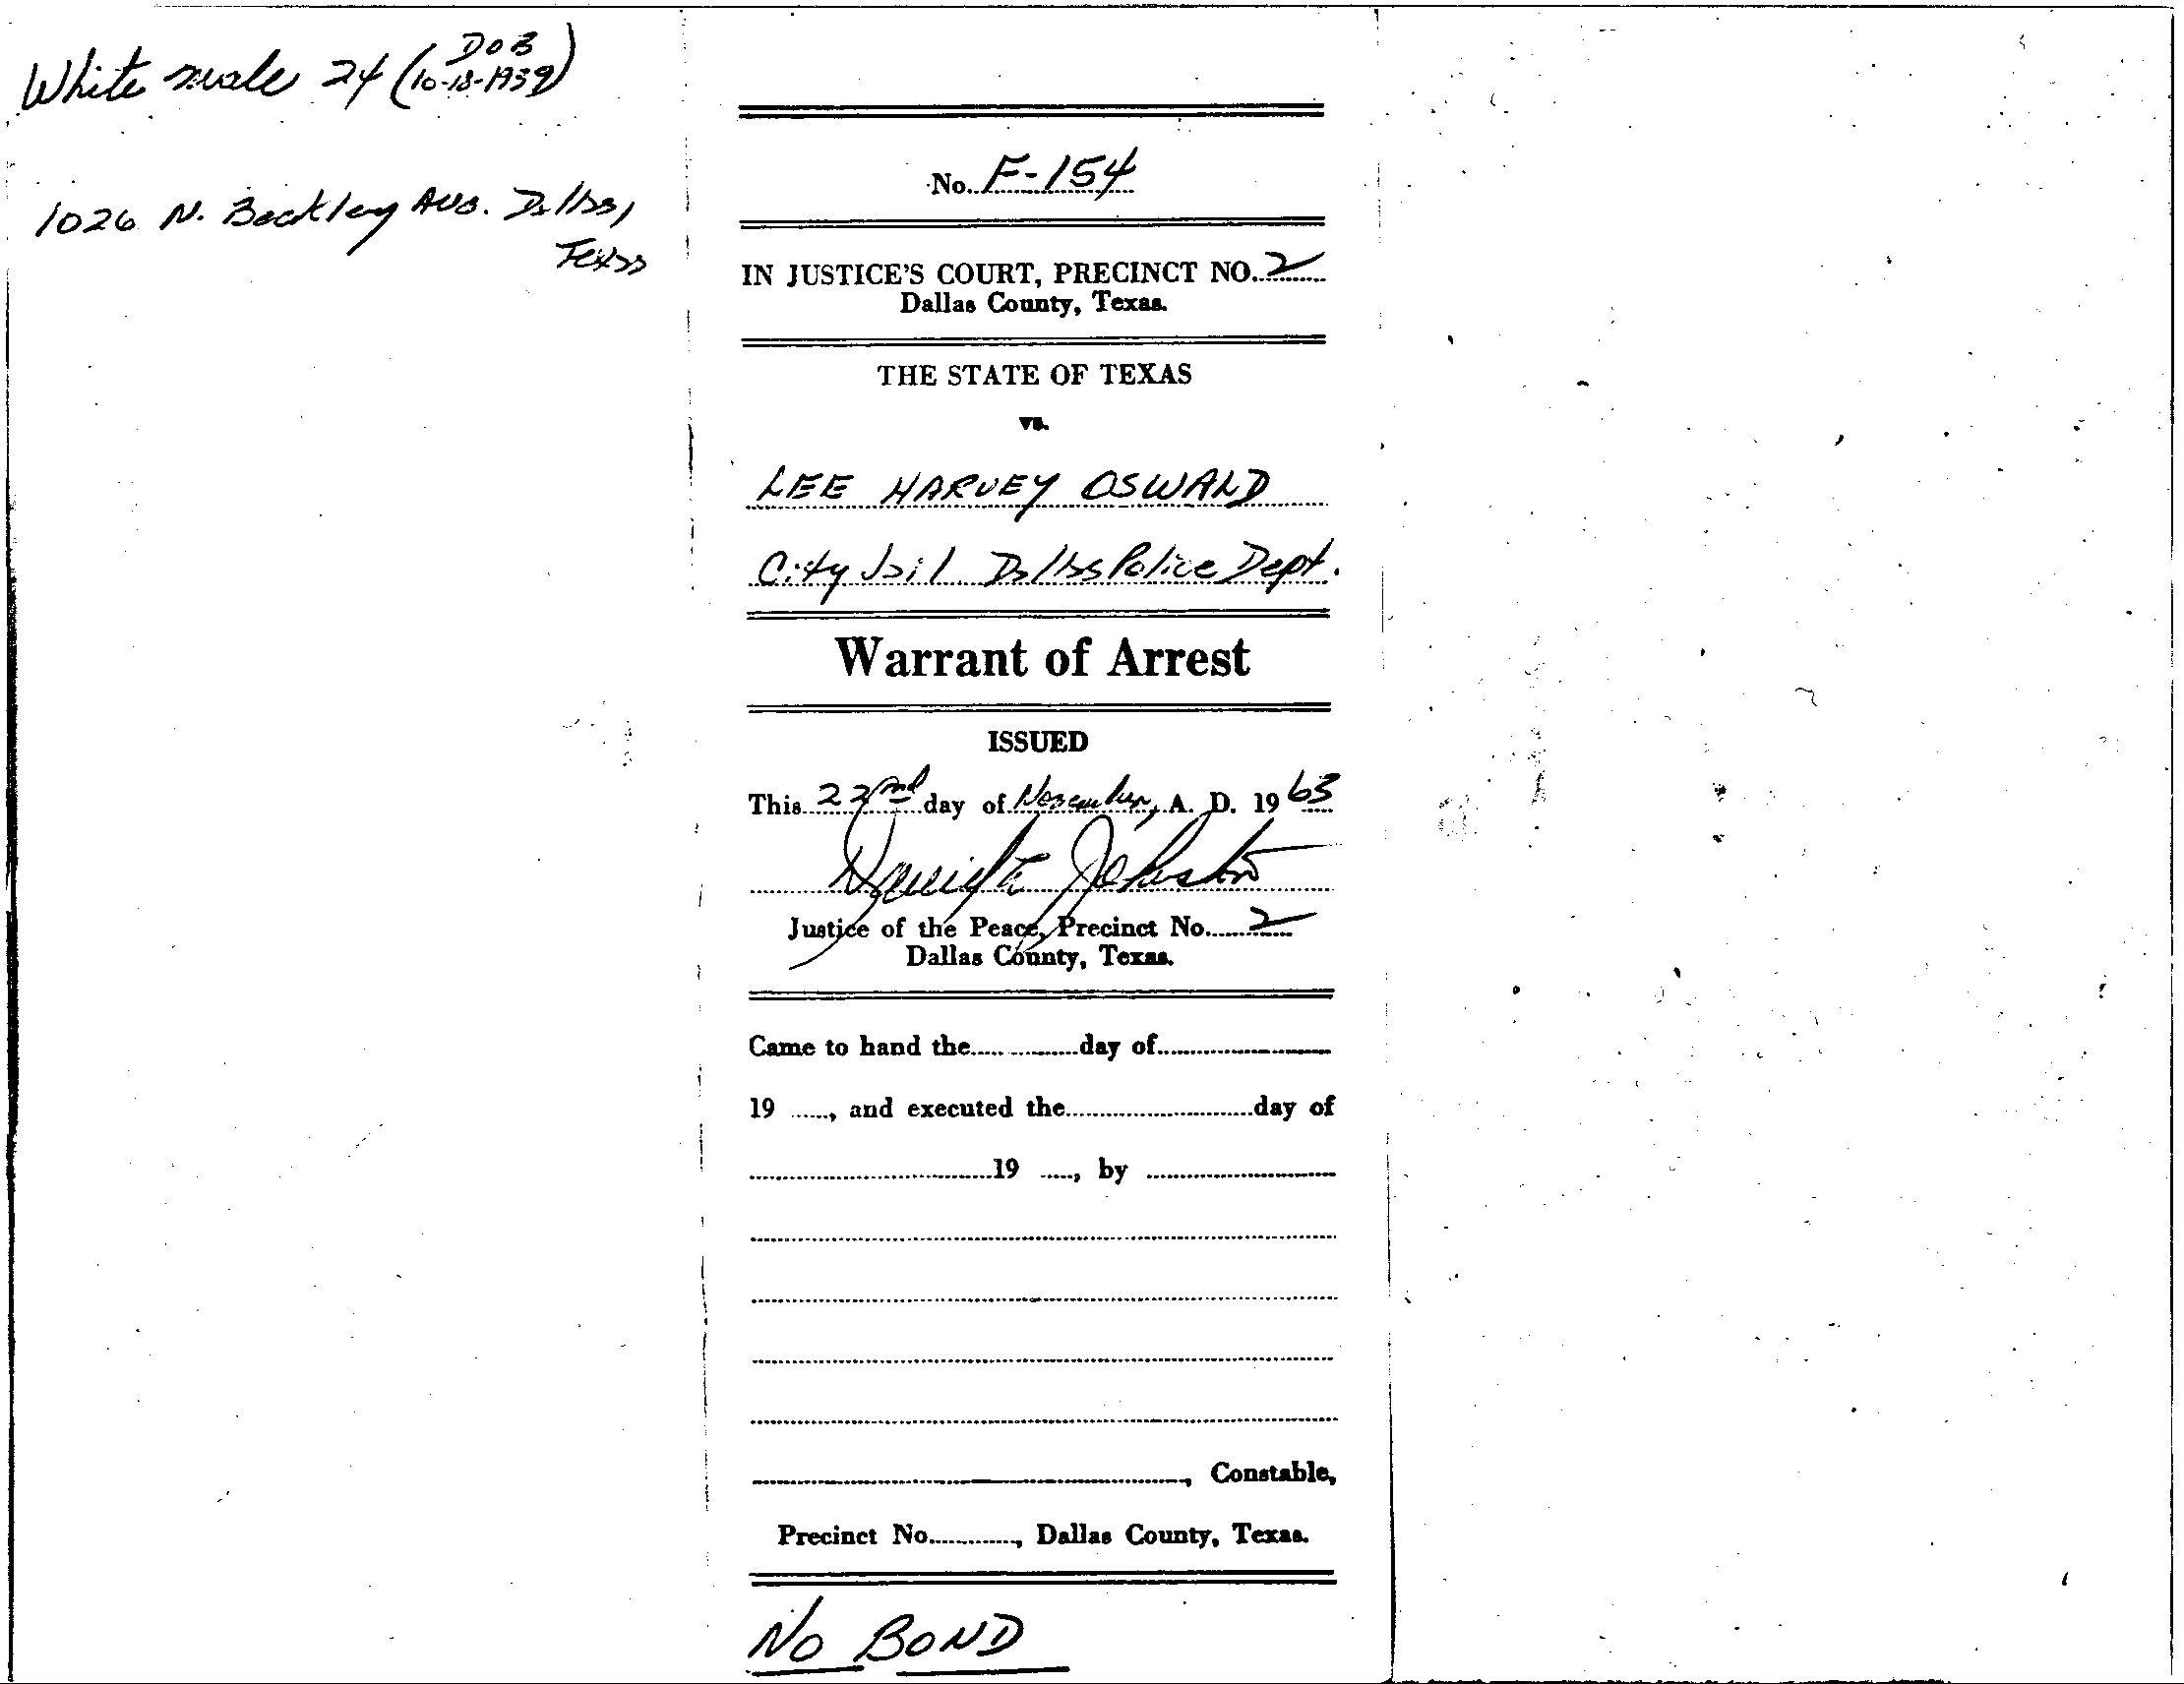 White male 24 (DOB
10-18-1939)
1026 N. Beckley Ave. Dallas,
Texas
No. F-154
IN JUSTICE'S COURT, PRECINCT NO. 2
Dallas County, Texas.
THE STATE OF TEXAS
vs.
LEE HARVEY OSWALD
City Jail Dallas Police Dept.
Warrant of Arrest
ISSUED
This 22nd day of November, A. D. 1963
Johnston
Justice of the Peace, Precinct No. 2
Dallas County, Texas.
Came to hand the day of
19 , and executed the day of
19 , by
, Constable,
Precinct No. , Dallas County, Texas.
No BOND